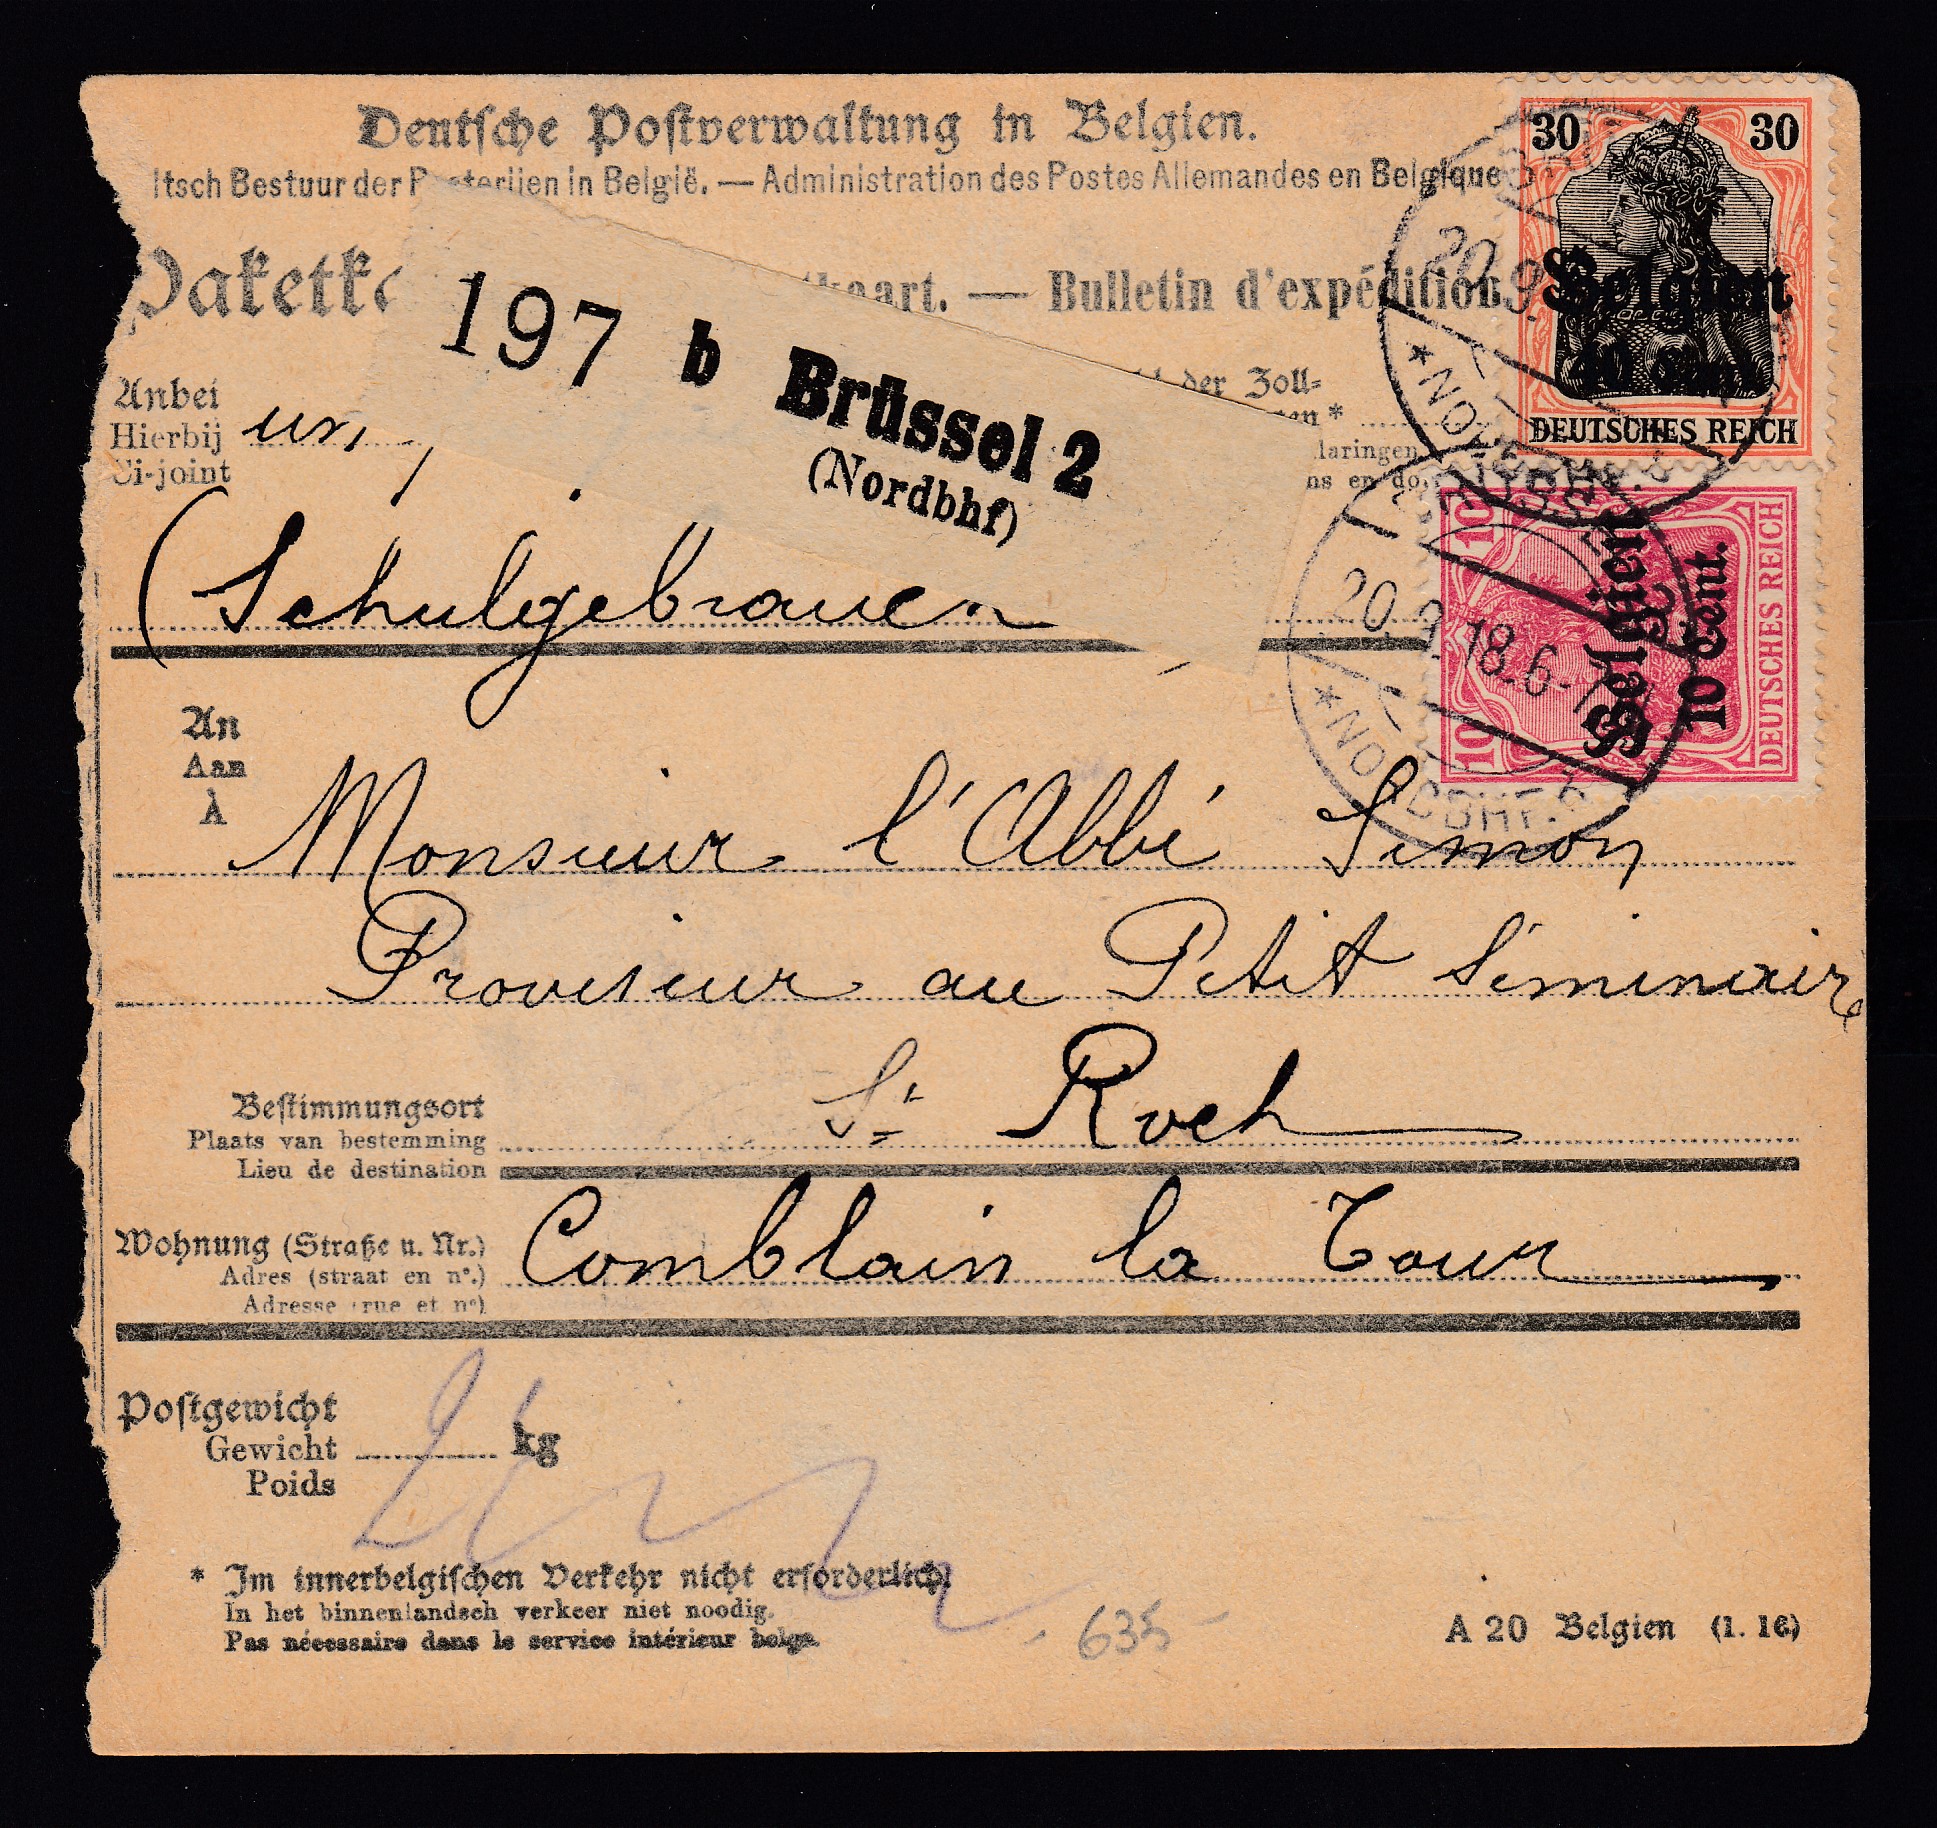 Deutsche Postverwaltung in Belgien.
itsch Bestuur der Posterijen in België. — Administration des Postes Allemandes en Belgique
Paketka
tkaart. — Bulletin d'expédition.
197 b Brüssel 2
(Nordbhf)
Anbei
Hierbij
Ci-joint
der Zoll=
en*
laringen
ns en do
(Schulgebrauch
30 30
Belgien
DEUTSCHES REICH
20.9.
10 10
Belgien
10 Cent.
DEUTSCHES REICH
20.9.18.6-7
* NORDBHF.
An
Aan
À
Monsieur l'Abbé Simon
Proviseur au Petit Séminaire
St Roch
Bestimmungsort
Plaats van bestemming
Lieu de destination
Comblain la Tour
Wohnung (Straße u. Nr.)
Adres (straat en n°.)
Adresse (rue et n°)
Postgewicht
Gewicht kg
Poids
* Im innerbelgischen Verkehr nicht erforderlich.
In het binnenlandsch verkeer niet noodig.
Pas nécessaire dans le service intérieur belge.
635
A 20 Belgien (1. 16)